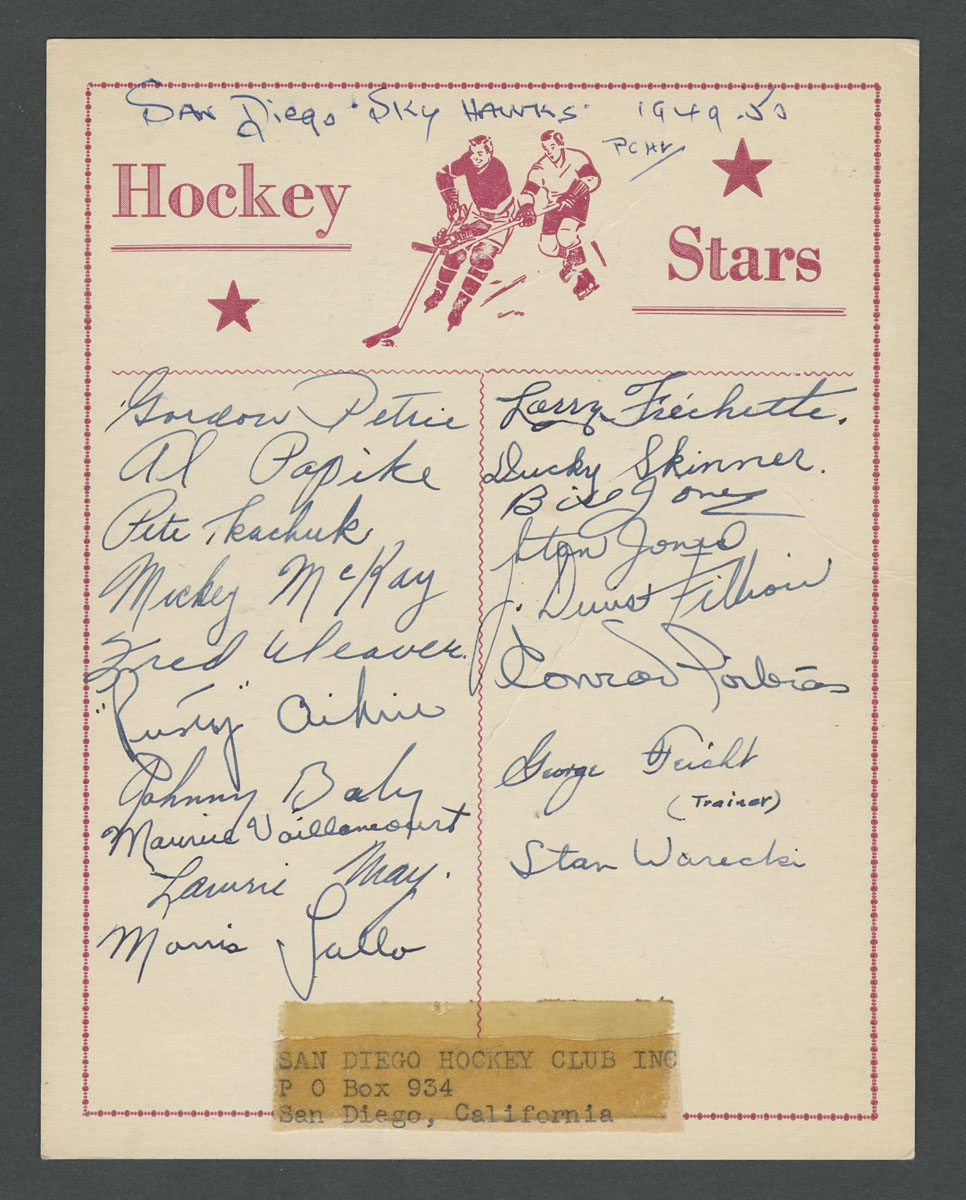 San Diego "Sky Hawks" 1949-50
PCHL
Hockey
Stars
Gordon Petrie
Al Papike
Pete Tkachuk
Mickey McKay
Fred Weaver.
"Rusty" Aikin
Johnny Baby
Maurice Vaillancourt
Lawrie May.
Morris Lallo
Larry Fréchette.
Ducky Skinner.
Bill Jones
Stan Jones
J. Fillion
Conrad Poitras
George Feicht
(Trainer)
Stan Warecki
SAN DIEGO HOCKEY CLUB INC
P O Box 934
San Diego, California